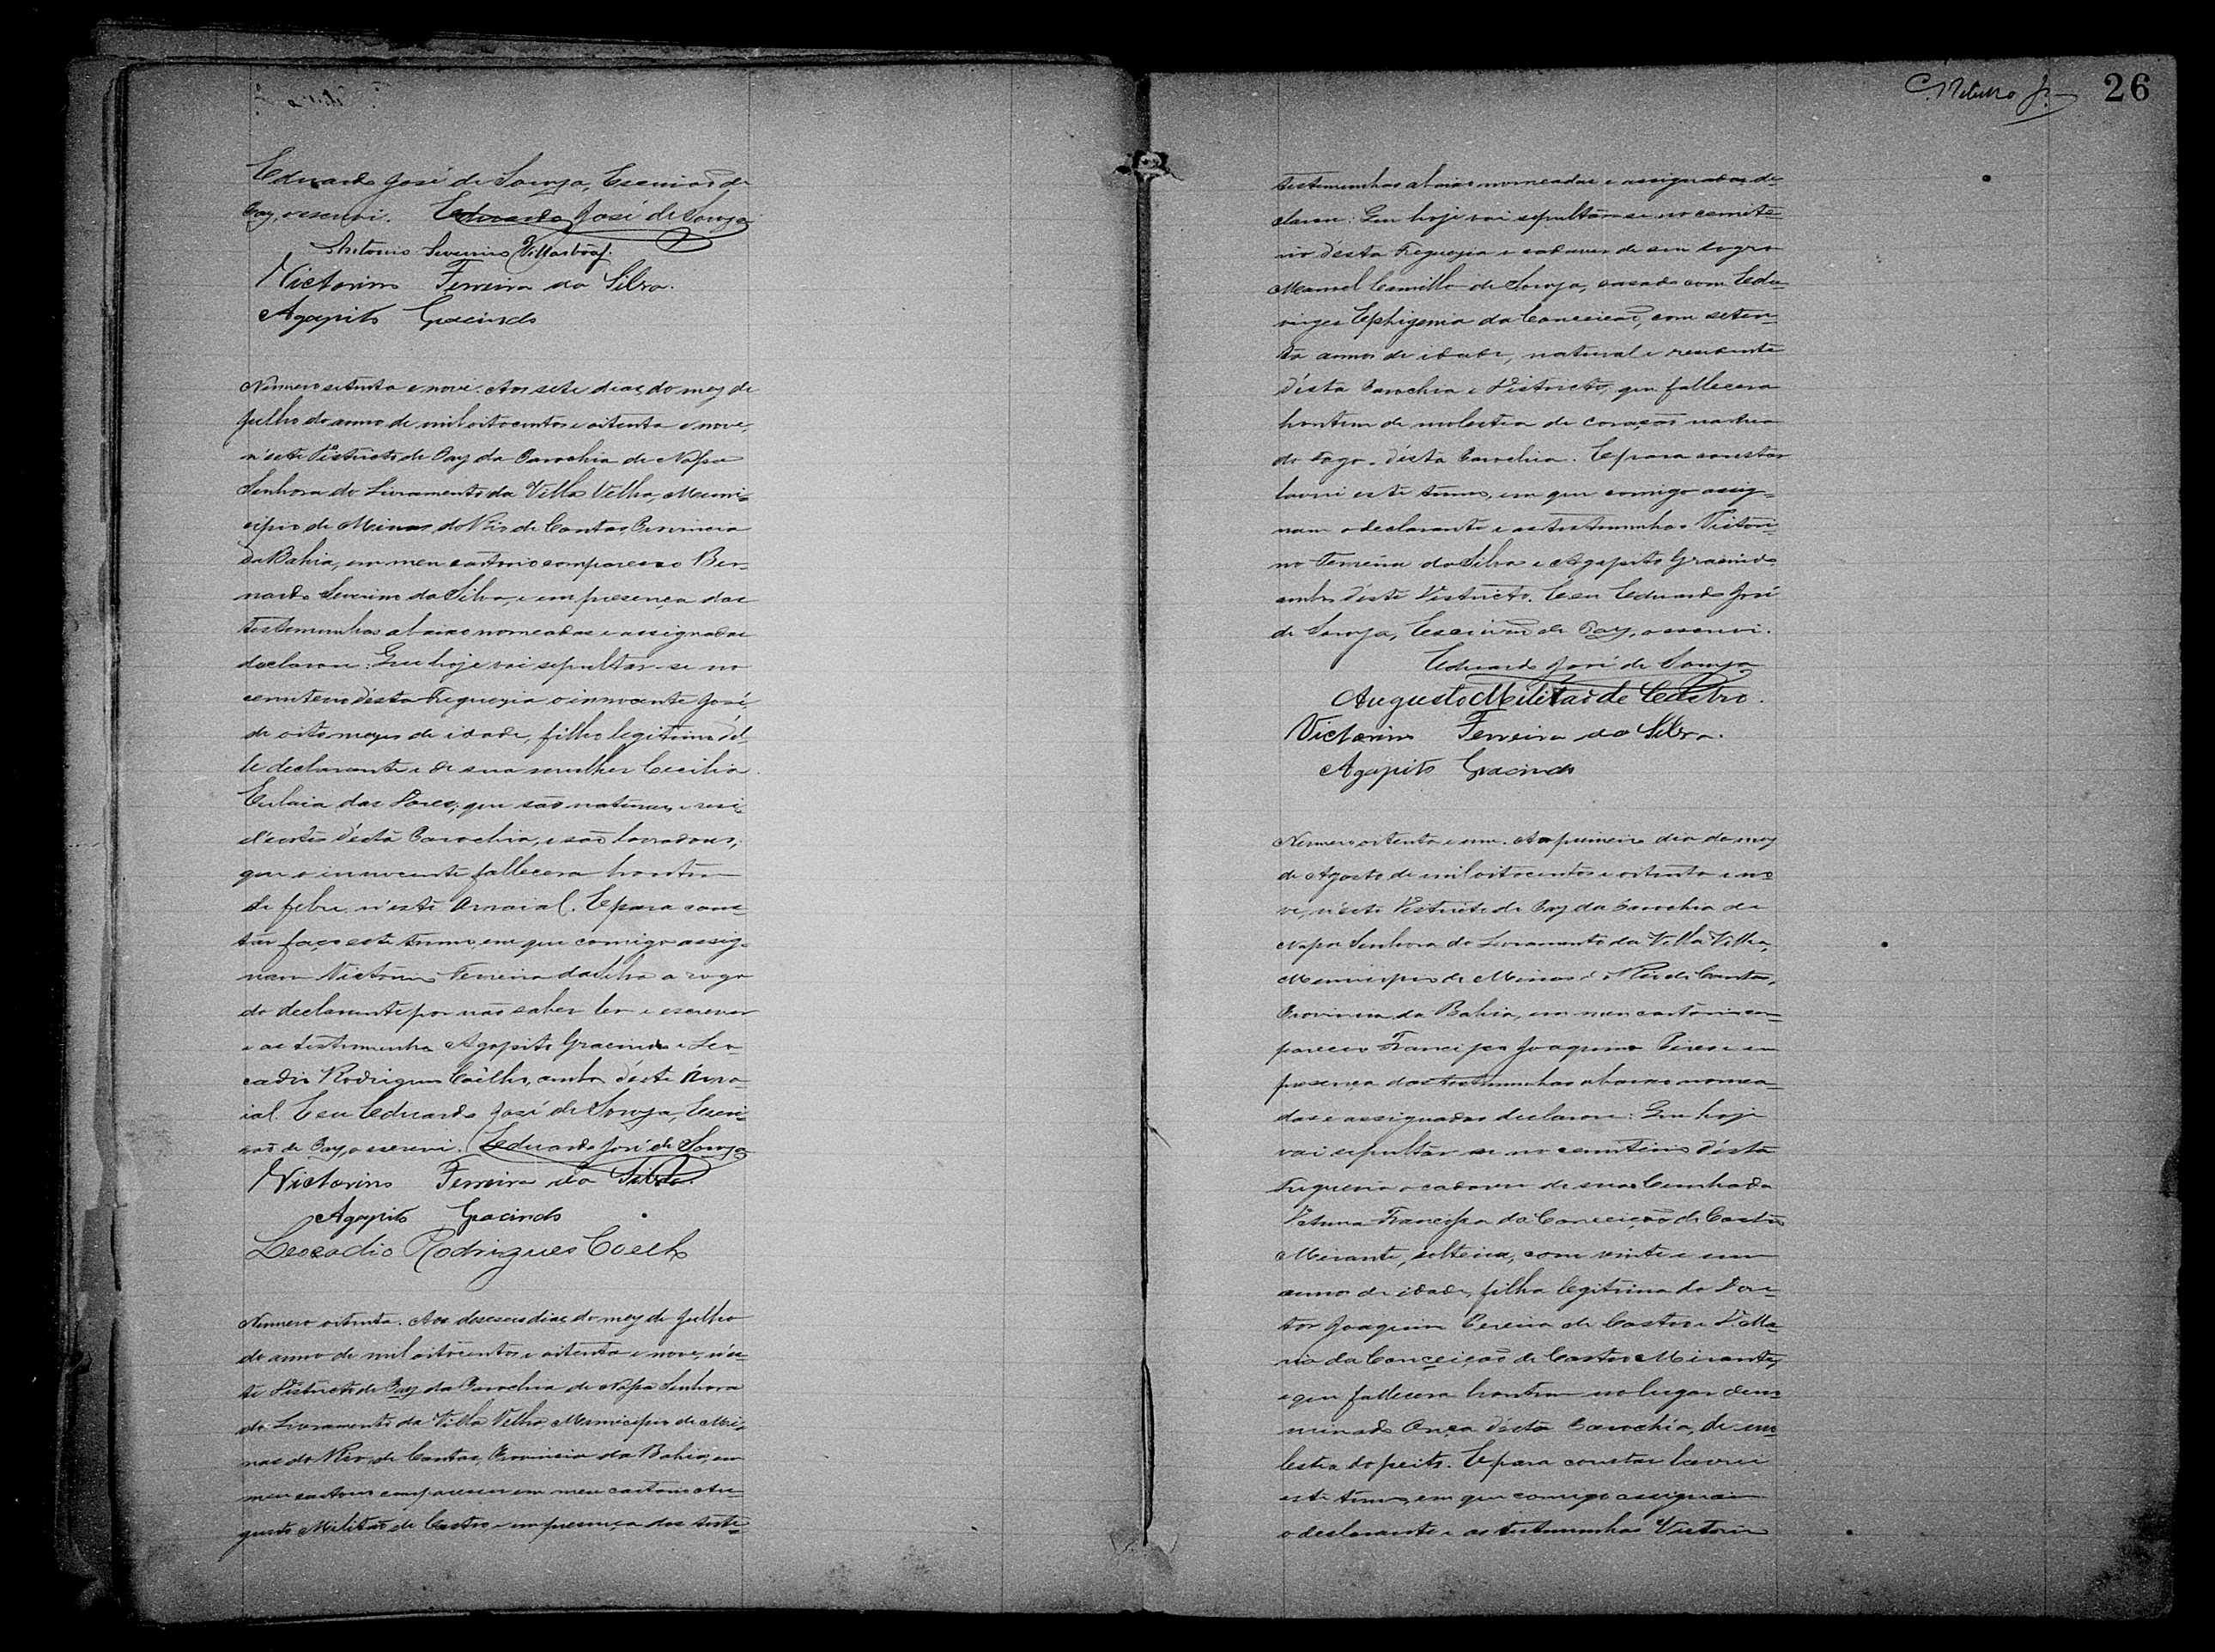 Eduardo José de Souza, Escrivão de
Paz, o escrevi. Eduardo José de Souza
Antonio Severino Villasbôas.
Victorino Ferreira da Silva.
Agapito Gracindo
Numero setenta e nove. Aos sete dias do mez de
Julho do anno de mil oitocentos e oitenta e nove,
n'este Districto de Paz da Parochia de Nossa
Senhora do Livramento da Villa Velha, Muni-
cipio de Minas do Rio de Contas, Provincia
da Bahia, em meu cartorio compareceo Ber-
nardo Severino da Silva, e em presença das
testemunhas abaixo nomeadas e assignadas
declarou: Que hoje vai sepultar-se no
cemiterio désta Freguezia o innocente José,
de oito mezes de idade, filho legitimo del-
le declarante e de sua mulher Cecilia
das Dores, que são naturaes e resi-
dentes désta Parochia, e são lavradores;
que o innocente fallecera hontem
de febre n'este Arraial. E para cons-
tar faço este termo, em que comigo assig-
nam Victorino Ferreira da Silva a rogo
do declarante por não saber ler e escrever
e as testemunhas Agapito Gracindo e Leo-
cadio Rodrigues Coêlho, ambos déste Arra-
ial. E eu Eduardo José de Souza, Escri-
vão de Paz, o escrevi. Eduardo José de Souza
Victorino Ferreira da Silva.
Agapito Gracindo
Leocadio Rodrigues Coelho
Numero oitenta. Aos deseseis dias do mez de Julho
do anno de mil oitocentos e oitenta e nove, n'és-
te Districto de Paz da Parochia de Nossa Senhora
do Livramento da Villa Velha, Municipio de Mi-
nas do Rio de Contas, Provincia da Bahia, em
meu cartorio compareceu em meu cartorio Au-
gusto Militão de Castro e em presença das teste-
26
testemunhas abaixo nomeadas e assignadas de-
clarou: Que hoje vai sepultar-se no cemite-
rio désta Freguezia o cadaver de seu sogro
Manoel Camillo de Souza, casado com Edu-
virges Ephigenia da Conceição, com seten-
ta annos de idade, natural e residente
désta Parochia e Districto, que fallecera
hontem de molestia de coração na rua
do Fogo désta Parochia. E para constar
lavrei este termo, em que comigo assig-
nam o declarante e as testemunhas Victori-
no Ferreira da Silva e Agapito Gracindo
ambos déste Districto. E eu Eduardo José
de Souza, Escrivão de Paz, o escrevi.
Eduardo José de Souza
Augusto Militão de Castro.
Victorino Ferreira da Silva.
Agapito Gracindo
Numero oitenta e um. Ao primeiro dia do mez
de Agosto de mil oitocentos e oitenta e no-
ve, n'éste Districto de Paz da Parochia de
Nossa Senhora do Livramento da Villa Velha,
Municipio de Minas do Rio de Contas,
Provincia da Bahia, em meu cartorio com-
pareceo Francisco Joaquim Pires e em
presença das testemunhas abaixo nomea-
das e assignadas declarou: Que hoje
vai sepultar-se no cemiterio désta
Freguezia o cadaver de sua Cunhada
Francisca da Conceição de Castro
Mirante, solteira, com vinte e um
annos de idade, filha legitima do Dou-
tor Joaquim Pereira de Castro e D. Ma-
ria da Conceição de Castro Mirante,
e que fallecera hontem no lugar deno-
minado Onça désta Parochia, de mo-
lestia do peito. E para constar lavrei
este termo, em que comigo assignam
o declarante e as testemunhas Victorin